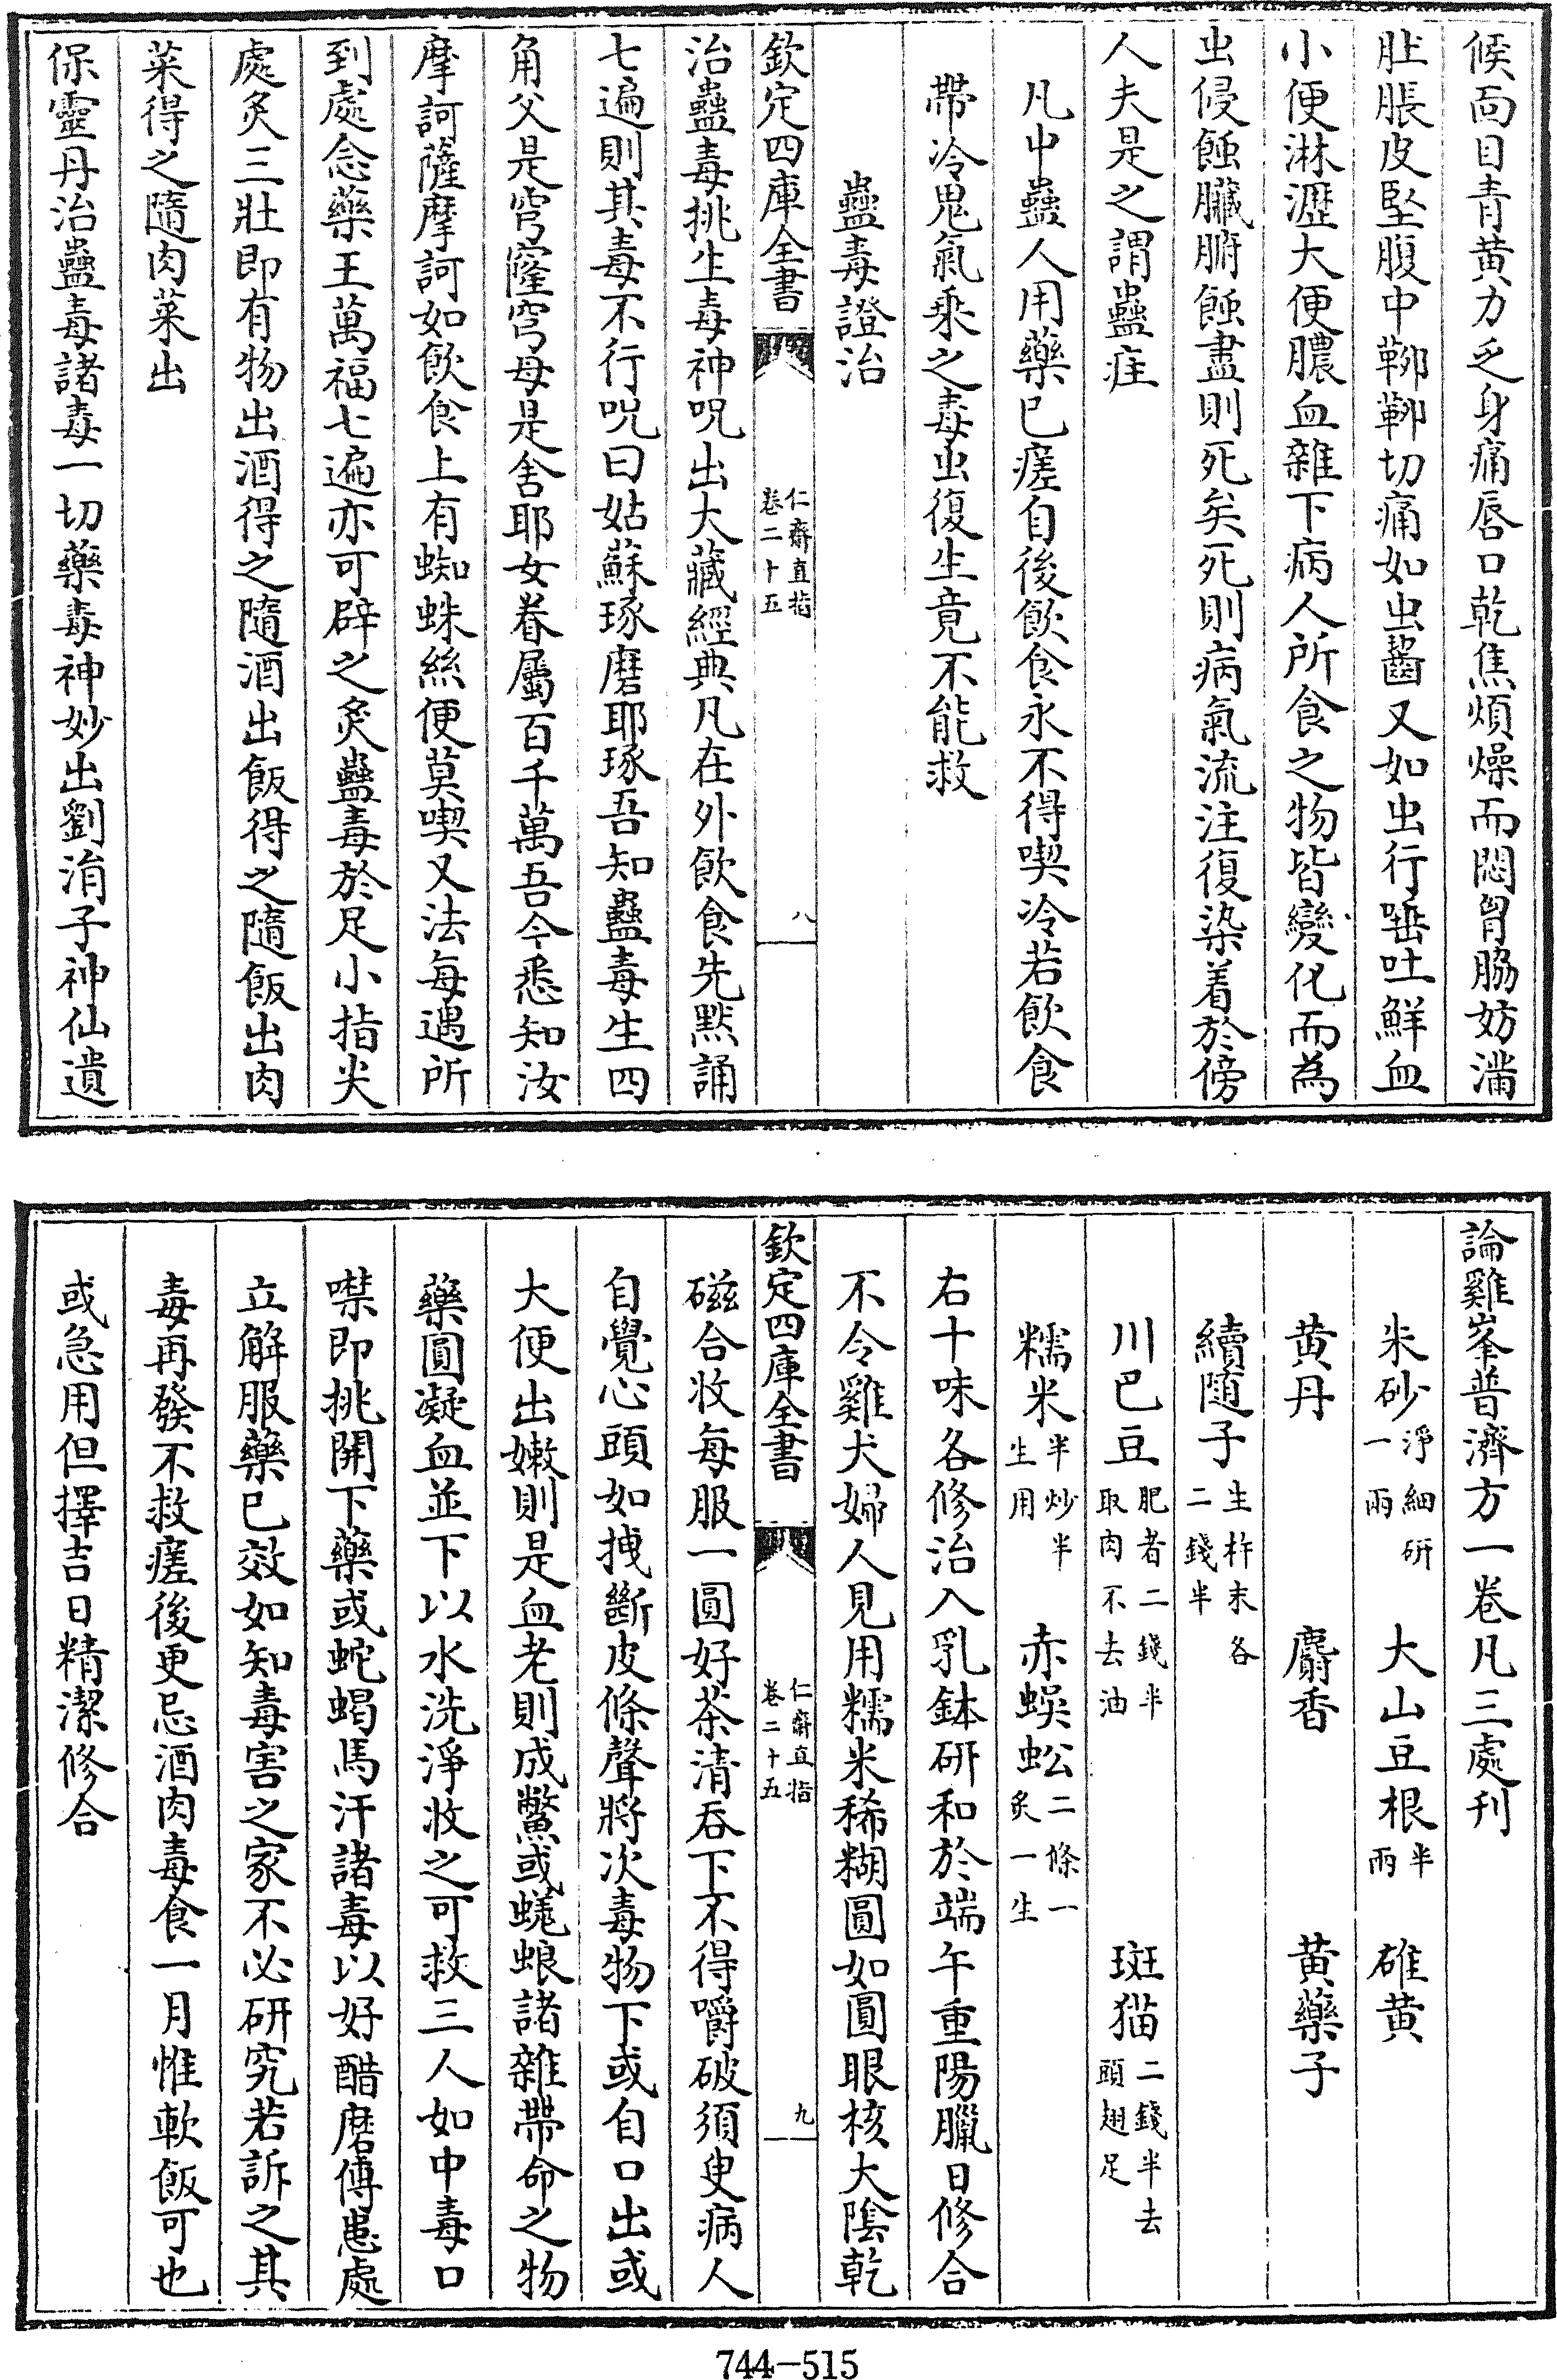 候面目青黄力乏身痛唇口乾焦煩燥而悶胷脇妨滿
肚脹皮堅腹中鞕鞕切痛如虫齧又如虫行唾吐鮮血
小便淋瀝大便膿血雜下病人所食之物皆變化而為
虫侵蝕臟腑蝕盡則死矣死則病氣流注復染着於傍
人夫是之謂蠱疰
凡中蠱人用藥已瘥自後飲食永不得喫冷若飲食
帶冷鬼氣乗之毒虫復生竟不能救
蠱毒證治
欽定四庫全書
仁齋直指
卷二十五
八
治蠱毒挑生毒神呪出大藏經典凡在外飲食先黙誦
七遍則其毒不行呪曰姑蘇琢磨耶琢吾知蠱毒生四
角父是穹窿穹母是舍耶女眷屬百千萬吾今悉知汝
摩訶薩摩訶如飲食上有蜘蛛絲便莫喫又法每遇所
到處念藥王萬福七遍亦可辟之灸蠱毒於足小指尖
處灸三壯即有物出酒得之隨酒出飯得之隨飯出肉
菜得之隨肉菜出
保靈丹治蠱毒諸毒一切藥毒神妙出劉涓子神仙遺
論雞峯普濟方一卷凡三處刋
朱砂淨細研一兩 大山豆根半兩 雄黄
黄丹 麝香 黄藥子
續随子生杵末各二錢半
川巴豆肥者二錢半取肉不去油 斑猫二錢半去頭翅足
糯米半炒半生用 赤蜈蚣二條一炙一生
右十味各修治入乳鉢研和於端午重陽臘日修合
不令雞犬婦人見用糯米稀糊圓如圓眼核大陰乾
欽定四庫全書
仁齋直指
卷二十五
九
磁合收每服一圓好茶清吞下不得嚼破須臾病人
自覺心頭如拽斷皮條聲將次毒物下或自口出或
大便出嫩則是血老則成鱉或蜣蜋諸雜帶命之物
藥圓凝血並下以水洗淨收之可救三人如中毒口
噤即挑開下藥或蛇蝎馬汗諸毒以好醋磨傅患處
立解服藥已效如知毒害之家不必研究若訴之其
毒再發不救瘥後更忌酒肉毒食一月惟軟飯可也
或急用但擇吉日精潔修合
744-515